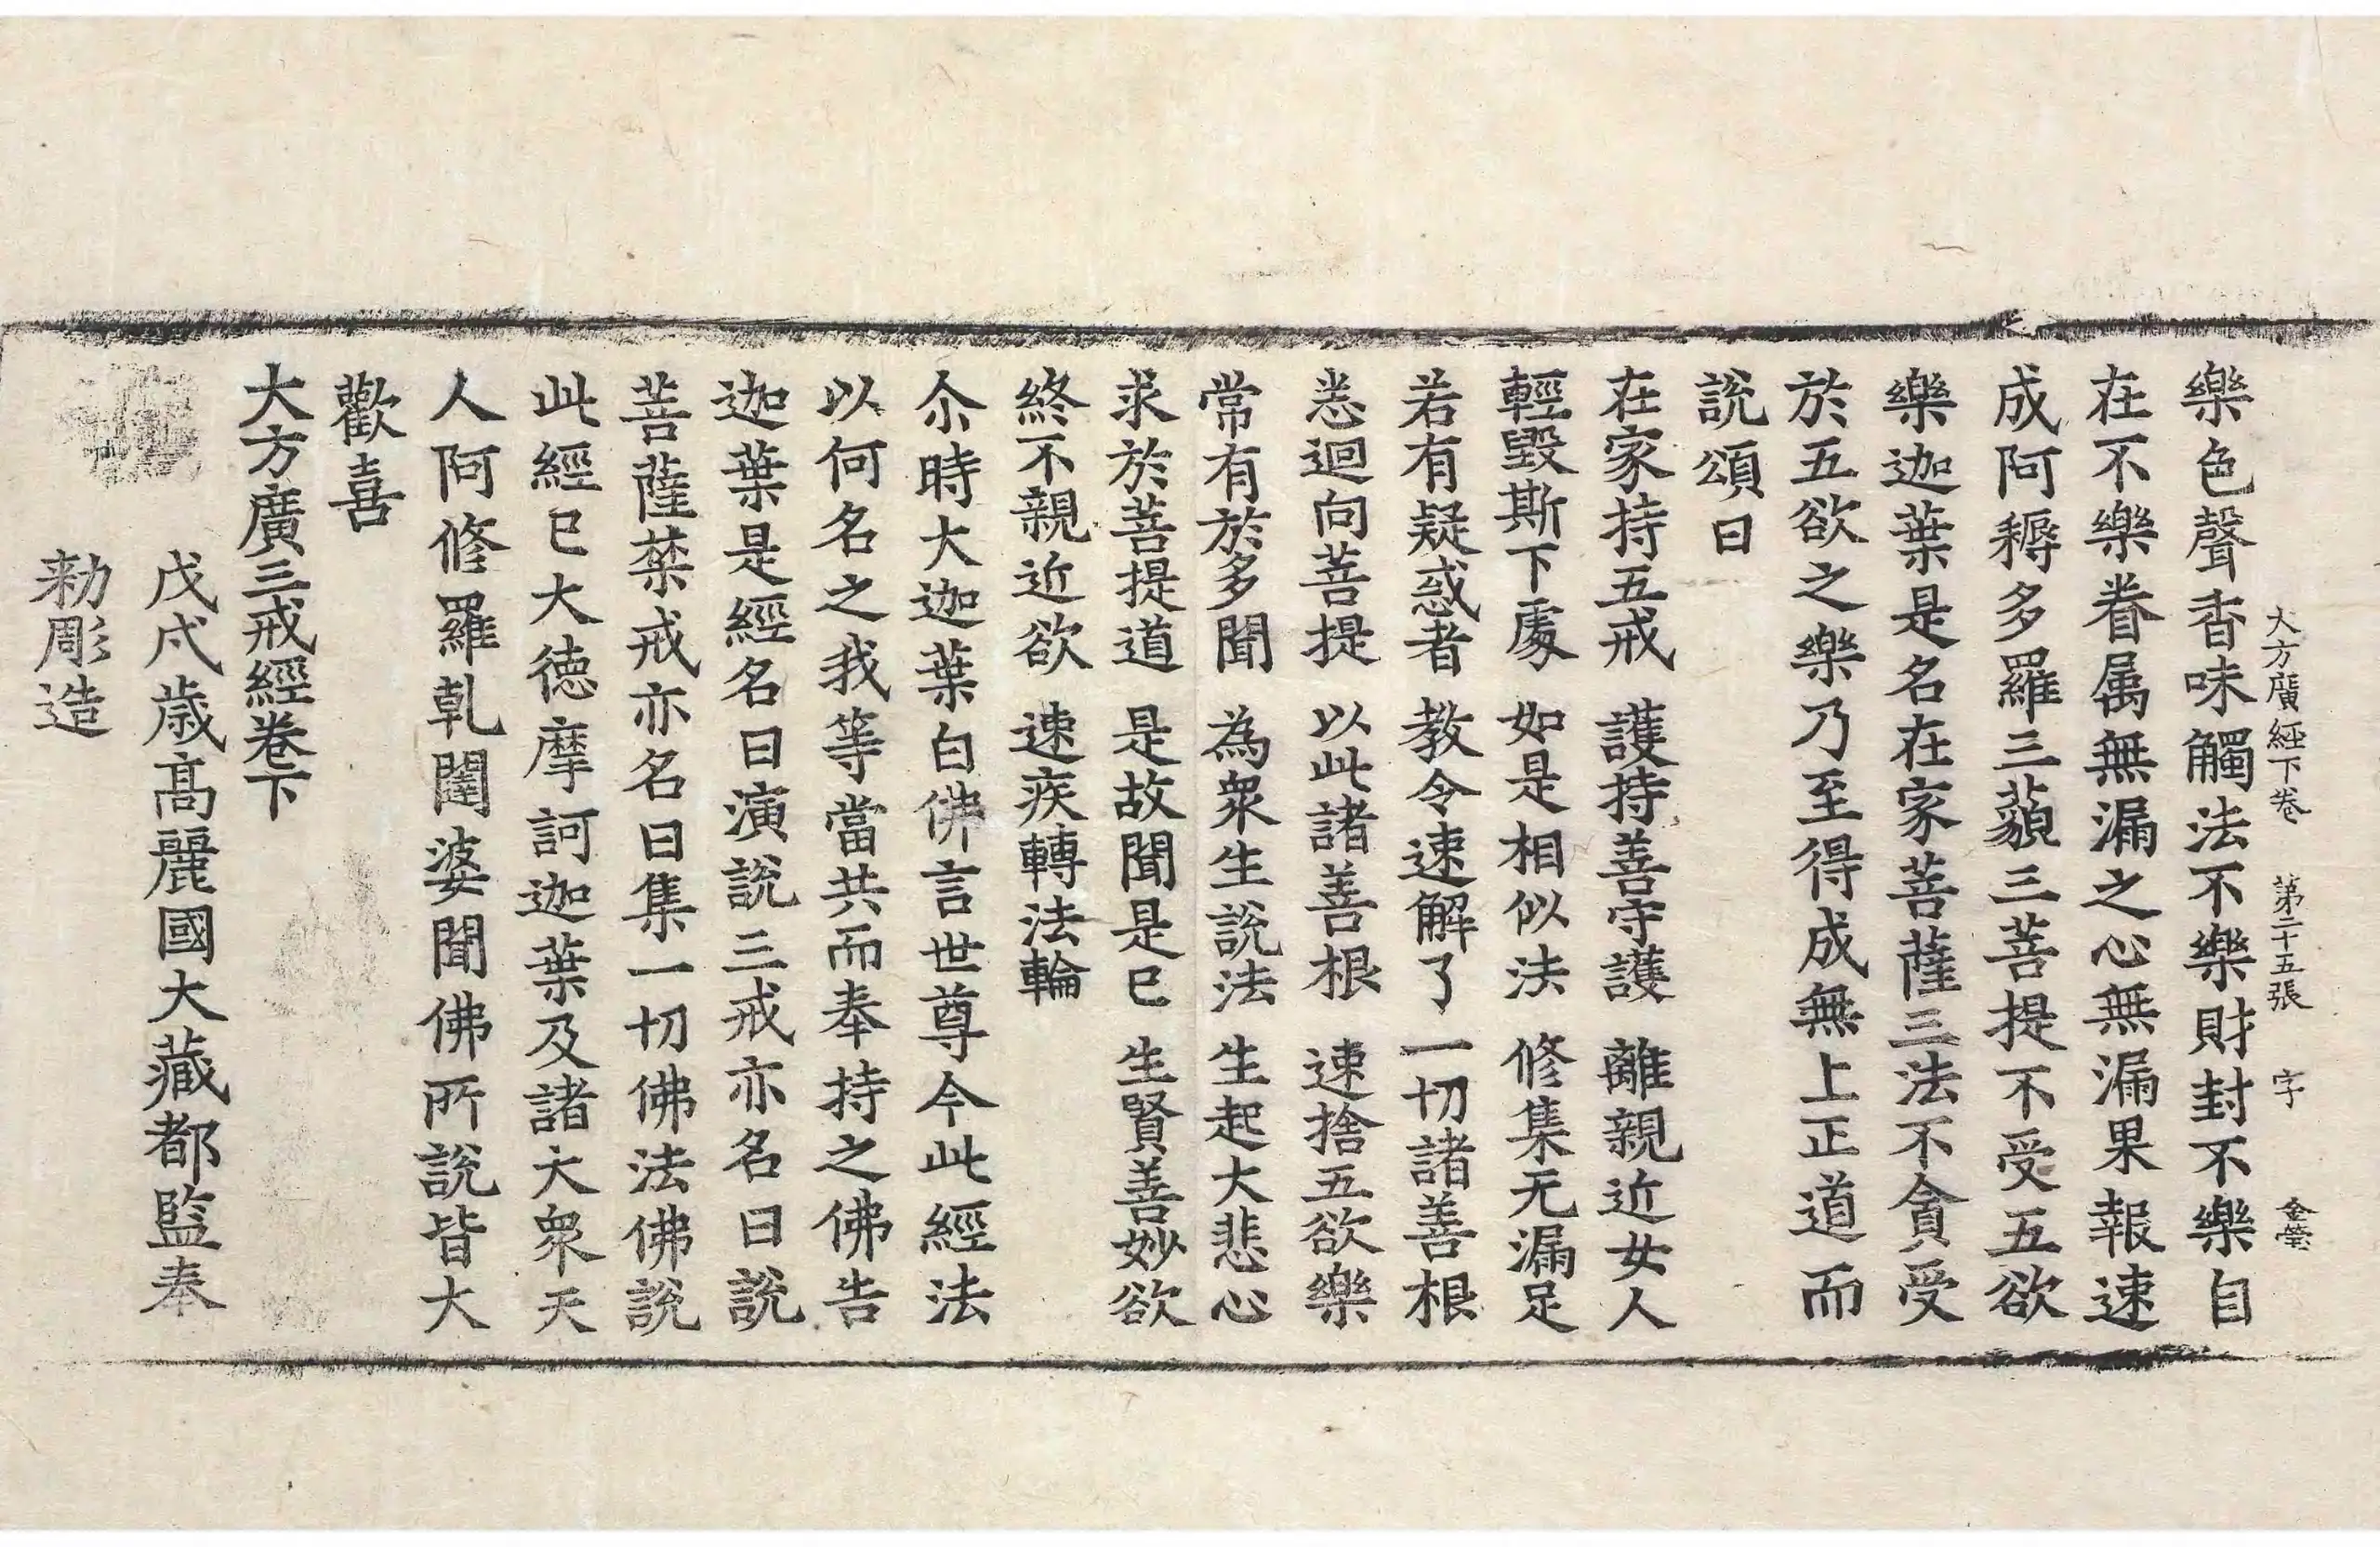 大方廣經下卷 第二十五張 字 金瑩
樂色聲香味觸法不樂財封不樂自
在不樂眷属無漏之心無漏果報速
成阿耨多羅三藐三菩提不受五欲
樂迦葉是名在家菩薩三法不貪受
於五欲之樂乃至得成無上正道而
說頌曰
在家持五戒 護持善守護 離親近女人
輕毀斯下處 如是相似法 修集无漏足
若有疑惑者 教令速解了 一切諸善根
恙迴向菩提 以此諸善根 速捨五欲樂
常有於多聞 為衆生說法 生起大悲心
求於菩提道 是故聞是已 生賢善妙欲
終不親近欲 速疾轉法輪
尒時大迦葉白佛言世尊今此經法
以何名之我等當共而奉持之佛告
迦葉是經名曰演說三戒亦名曰說
菩薩禁戒亦名曰集一切佛法佛說
此經已大徳摩訶迦葉及諸大衆天
人阿修羅乹闥婆聞佛所說皆大
歡喜
大方廣三戒經卷下
戊戌歳髙麗國大藏都監奉
勅彫造